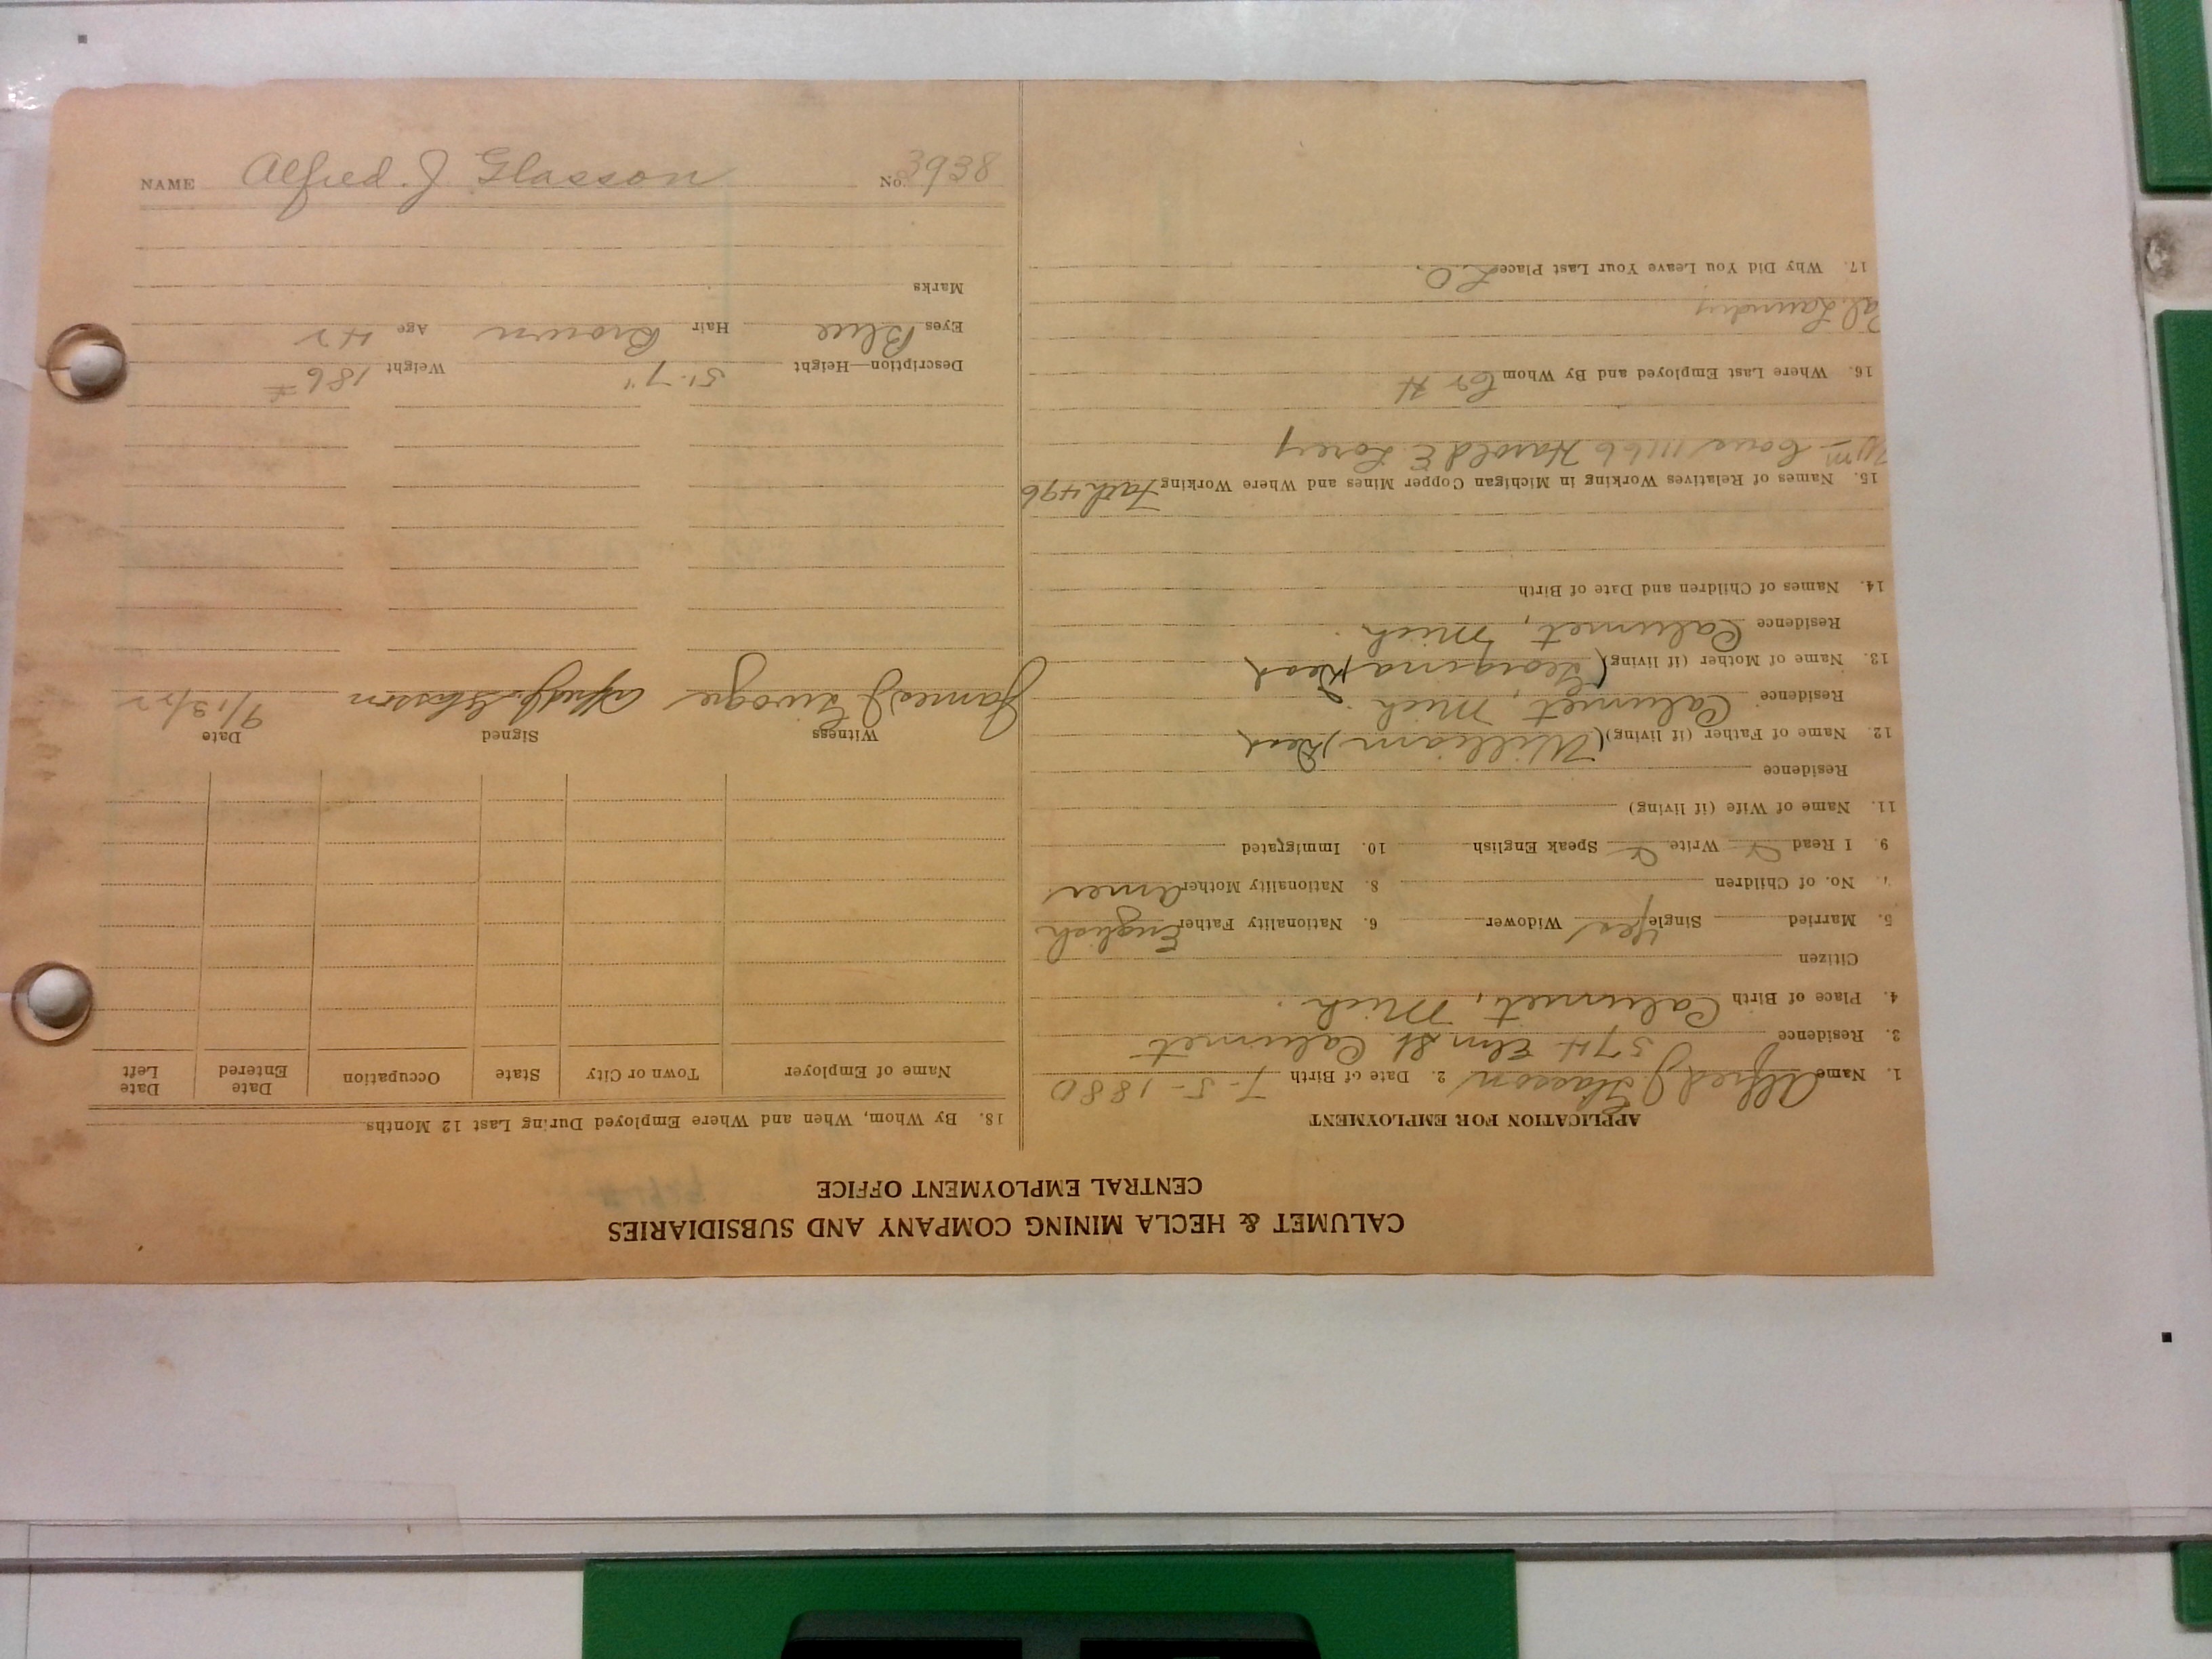 CALUMET & HECLA MINING COMPANY AND SUBSIDIARIES
CENTRAL EMPLOYMENT OFFICE
APPLICATION FOR EMPLOYMENT
1. Name Alfred J Glasson 2. Date of Birth 7-5-1880
3. Residence 574 Elm St. Calumet
4. Place of Birth Calumet, Mich.
Citizen
5. Married Single yes Widower 6. Nationality Father English
7. No. of Children 8. Nationality Mother Amer
9. I Read Write Speak English 10. Immigrated
11. Name of Wife (if living)
Residence
12. Name of Father (if living) (William) Dead
Residence Calumet, Mich.
13. Name of Mother (if living) (Georgina) Dead
Residence Calumet, Mich.
14. Names of Children and Date of Birth
15. Names of Relatives Working in Michigan Copper Mines and Where Working
Harold E
16. Where Last Employed and By Whom C & H
Laundry
17. Why Did You Leave Your Last Place L.O.
18. By Whom, When and Where Employed During Last 12 Months
Name of Employer Town or City State Occupation Date Entered Date Left
Witness Signed Date
James J Alfred J. Glasson 9/13/22
Description—Height 5'-7" Weight 186#
Eyes Blue Hair Brown Age 42
Marks
NAME Alfred. J Glasson No. 3938